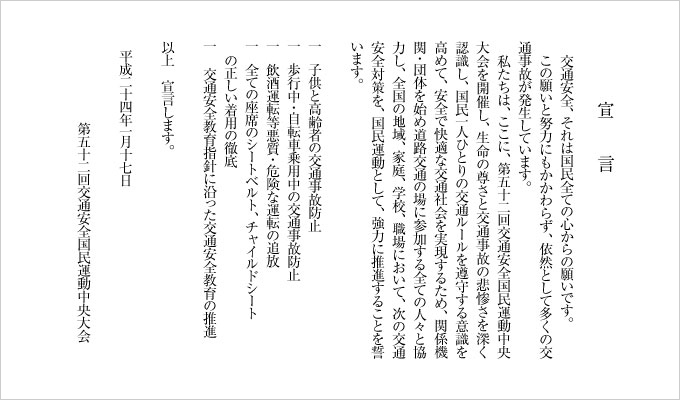 宣　言
　交通安全、それは国民全ての心からの願いです。
　この願いと努力にもかかわらず、依然として多くの交
通事故が発生しています。
　私たちは、ここに、第五十二回交通安全国民運動中央
大会を開催し、生命の尊さと交通事故の悲惨さを深く
認識し、国民一人ひとりの交通ルールを遵守する意識を
高めて、安全で快適な交通社会を実現するため、関係機
関・団体を始め道路交通の場に参加する全ての人々と協
力し、全国の地域、家庭、学校、職場において、次の交通
安全対策を、国民運動として、強力に推進することを誓
います。
一　子供と高齢者の交通事故防止
一　歩行中・自転車乗用中の交通事故防止
一　飲酒運転等悪質・危険な運転の追放
一　全ての座席のシートベルト、チャイルドシート
　の正しい着用の徹底
一　交通安全教育指針に沿った交通安全教育の推進
以上　宣言します。
平成二十四年一月十七日
第五十二回交通安全国民運動中央大会